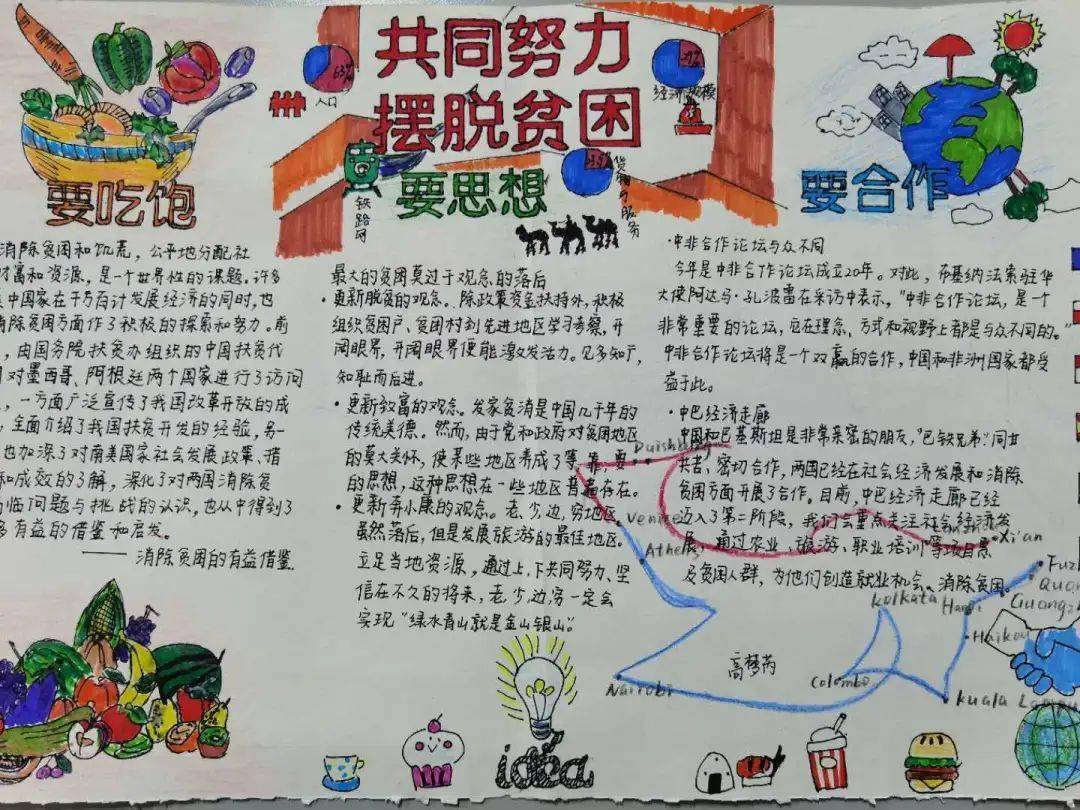 共同努力
摆脱贫困
63%
人口
经济规模
铁路网
货物与服务
要吃饱
要思想
要合作
消除贫困和饥荒，公平地分配社
财富和资源，是一个世界性的课题。许多
中国家在千方百计发展经济的同时，也
消除贫困方面作了积极的探索和努力。前
，由国务院扶贫办组织的中国扶贫代
对墨西哥、阿根廷两个国家进行了访问
，一方面广泛宣传了我国改革开放的成
，全面介绍了我国扶贫开发的经验，另一
也加深了对南美国家社会发展政策、措
和成效的了解，深化了对两国消除贫
临问题与挑战的认识，也从中得到了
多有益的借鉴和启发。
——消除贫困的有益借鉴
最大的贫困莫过于观念的落后
·更新脱贫的观念。除政策资金扶持外，积极
组织贫困户、贫困村到先进地区学习考察，开
阔眼界，开阔眼界便能激发活力。见多知广，
知耻而后进。
·更新致富的观念。发家贫消是中国几千年的
传统美德。然而，由于党和政府对贫困地区
的莫大关怀，使某些地区养成了等、靠、要
的思想，这种思想在一些地区普遍存在。
·更新奔小康的观念。老、少、边、穷地区
虽然落后，但是发展旅游的最佳地区。
立足当地资源，通过上、下共同努力、坚
信在不久的将来，老、少、边、穷一定会
实现“绿水青山就是金山银山”。
·中非合作论坛与众不同
今年是中非合作论坛成立20年。对此，布基纳法索驻华
大使阿达马·孔波雷在采访中表示，“中非合作论坛，是一个
非常重要的论坛，应在理念、方式和视野上都是与众不同的。”
中非合作论坛将是一个双赢的合作，中国和非洲国家都受
益于此。
·中巴经济走廊
中国和巴基斯坦是非常亲密的朋友，“巴铁兄弟”同甘
共苦、密切合作，两国已经在社会经济发展和消除
贫困方面开展了合作。目前，中巴经济走廊已经
迈入了第二阶段，我们会重点关注社会经济发
展，通过农业、旅游、职业培训等项目惠
及贫困人群，为他们创造就业机会、消除贫困。
Venice
Xi'an
Kolkata
Nairobi
Colombo
高梦芮
idea